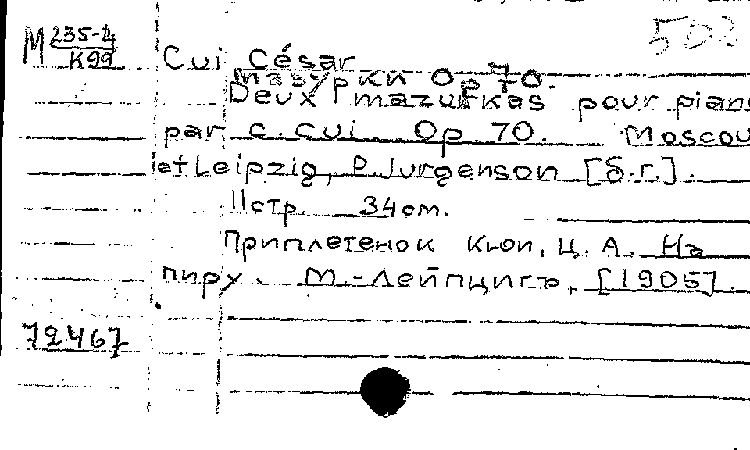 502
М 235-2
К99
Cui César
Мазурки Op 70.
Deux mazurkas pour piano
par C. Cui Op 70. Moscou
et Leipzig, P. Jurgenson [б.г.].
11 стр. 34 cm.
Приплетенок Кюи, Ц. А. На
пиру. М.-Лейпцигъ, [1905].
72467